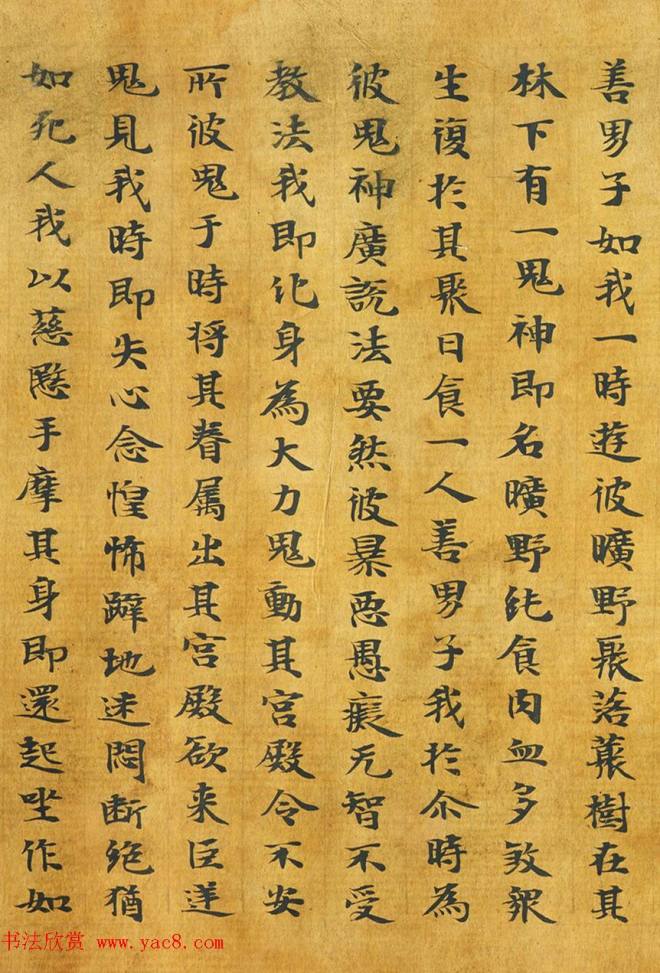 善男子如我一時遊彼曠野聚落藂樹在其
林下有一鬼神即名曠野純食肉血多煞眾
生復於其聚日食一人善男子我於尒時為
彼鬼神廣說法要然彼暴惡愚癡无智不受
教法我即化身為大力鬼動其宮殿令不安
所彼鬼于時将其眷屬出其宮殿欲来拒逆
鬼見我時即失心念惶怖躃地迷悶断绝猶
如死人我以慈愍手摩其身即還起坐作如
书法欣赏 www.yac8.com